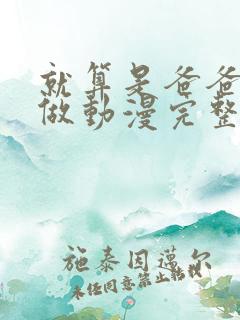 就算是爸爸
做動漫完整
施泰因邁尔
未任同意禁止转载